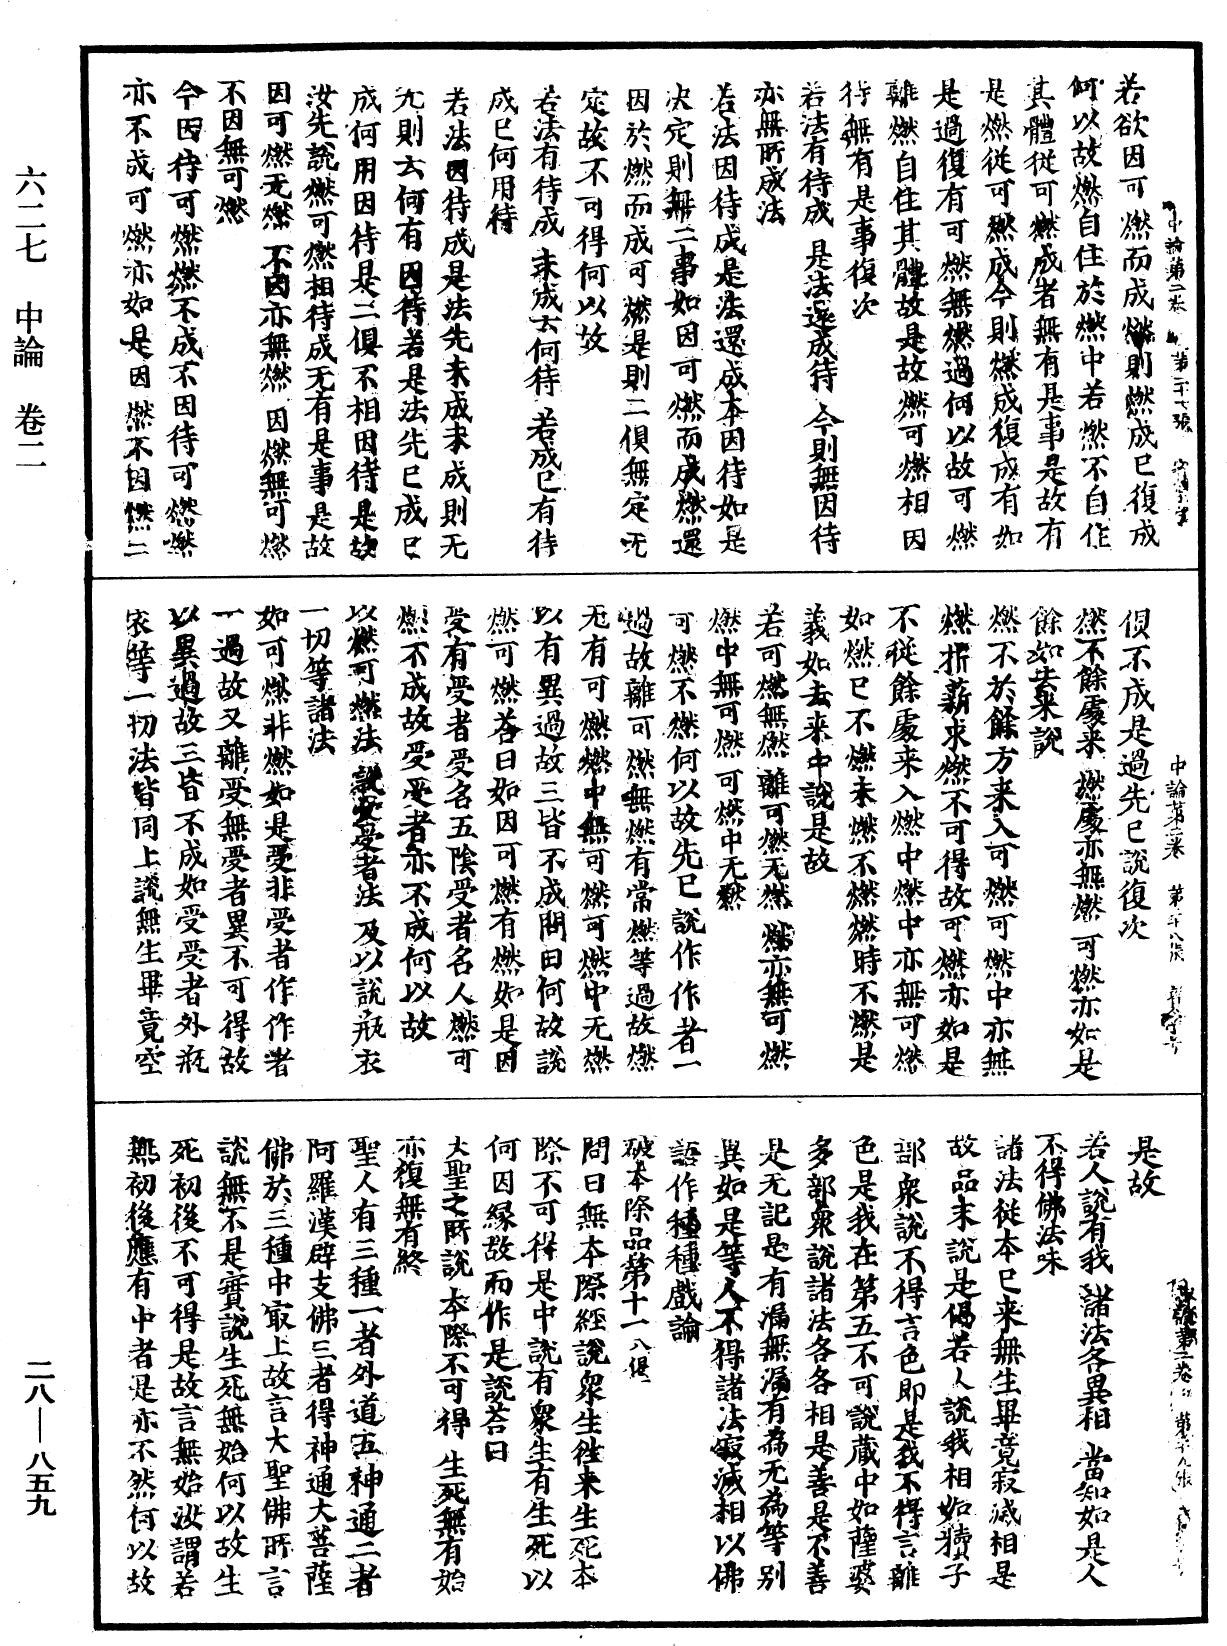 六二七　中論　卷二
二八—八五九
若欲因可燃而成燃則燃成已復成
何以故燃自住於燃中若燃不自住
其體從可燃成者無有是事是故有
是燃從可燃成今則燃成復成有如
是過復有可燃無燃過何以故可燃
離燃自住其體故是故燃可燃相因
待無有是事復次
若法有待成　是法還成待　今則無因待
亦無所成法
若法因待成是法還成本因待如是
决定則無二事如因可燃而成燃還
因於燃而成可燃是則二俱無定无
定故不可得何以故
若法有待成　未成云何待　若成已有待
成已何用待
若法因待成是法先未成未成則无
无則云何有因待若是法先已成已
成何用因待是二俱不相因待是故
汝先說燃可燃相待成无有是事是故
因可燃无燃　不因亦無燃　因燃無可燃
不因無可燃
今因待可燃燃不成不因待可燃燃
亦不成可燃亦如是因燃不因燃二
中論第二卷　第二十八張
俱不成是過先已說復次
燃不餘處來　燃處亦無燃　可燃亦如是
餘如去來說
燃不於餘方來入可燃可燃中亦無
燃析薪求燃不可得故可燃亦如是
不從餘處來入燃中燃中亦無可燃
如燃已不燃未燃不燃燃時不燃是
義如去來中說是故
若可燃無燃　離可燃无燃　燃亦無可燃
燃中無可燃　可燃中无燃
可燃不燃何以故先已說作作者一
過故離可燃無燃有常燃等過故燃
无有可燃燃中無可燃可燃中无燃
以有異過故三皆不成問曰何故說
燃可燃荅曰如因可燃有燃如是因
受有受者受名五陰受者名人燃可
燃不成故受受者亦不成何以故
以燃可燃法　說受受者法　及以說瓶衣
一切等諸法
如可燃非燃如是受非受者作作者
一過故又離受無受者異不可得故
以異過故三皆不成如受受者外瓶
衣等一切法皆同上說無生畢竟空
是故
若人說有我　諸法各異相　當知如是人
不得佛法味
諸法從本已来無生畢竟寂滅相是
故品末說是偈若人說我相如犢子
部衆說不得言色即是我不得言離
色是我在第五不可說藏中如薩婆
多部衆說諸法各各相是善是不善
是无記是有漏無漏有為无為等別
異如是等人不得諸法寂滅相以佛
語作種種戲論
破本際品第十一八偈
問曰無本際經說衆生徃来生死本
際不可得是中說有衆生有生死以
何因緣故而作是說荅曰
大聖之所說　本際不可得　生死無有始
亦復無有終
聖人有三種一者外道五神通二者
阿羅漢辟支佛三者得神通大菩薩
佛於三種中最上故言大聖佛所言
說無不是實說生死無始何以故生
死初後不可得是故言無始汝謂若
無初後應有中者是亦不然何以故